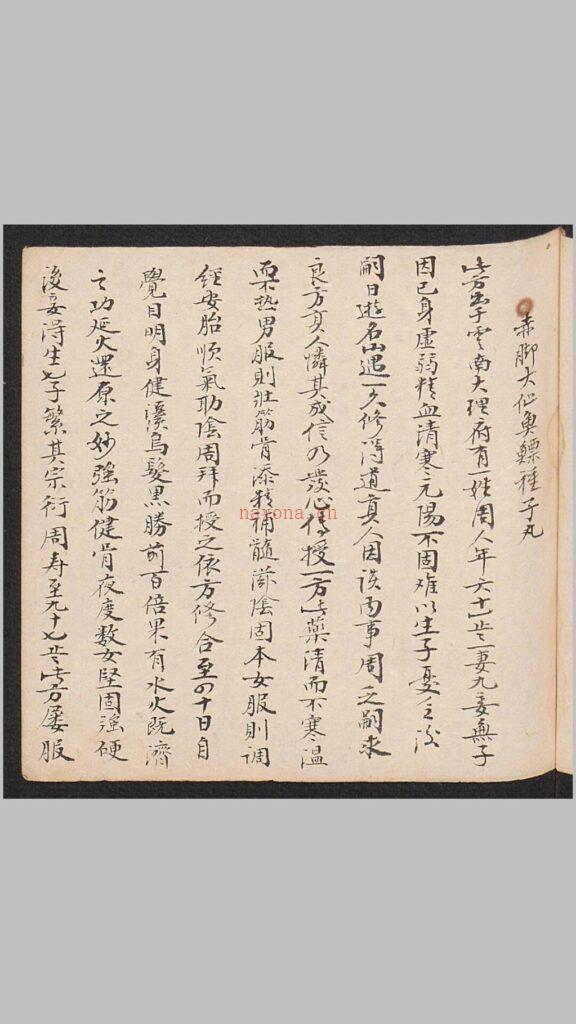 赤脚大仙魚鰾種子丸
此方出于雲南大理府有一姓周人年六十岁一妻九妾無子
因已身虚弱精血清寒元陽不固难以生子憂乏
嗣日遊名山遇一久修得道真人因談两事周乏嗣求
良方真人憐其成信乃發心傳授一方此藥清而不寒温
而不热男服則壯筋骨添精補髓滋陰固本女服則调
經安胎順氣助陰周拜而授之依方修合至四十日自
覺目明身健鬚烏髮黑勝前百倍果有水火既濟
之功延火還原之妙强筋健骨夜度数女堅固强硬
後妾得生七子繁其宗衍周寿至九十七岁此方屡服
naxona.cn